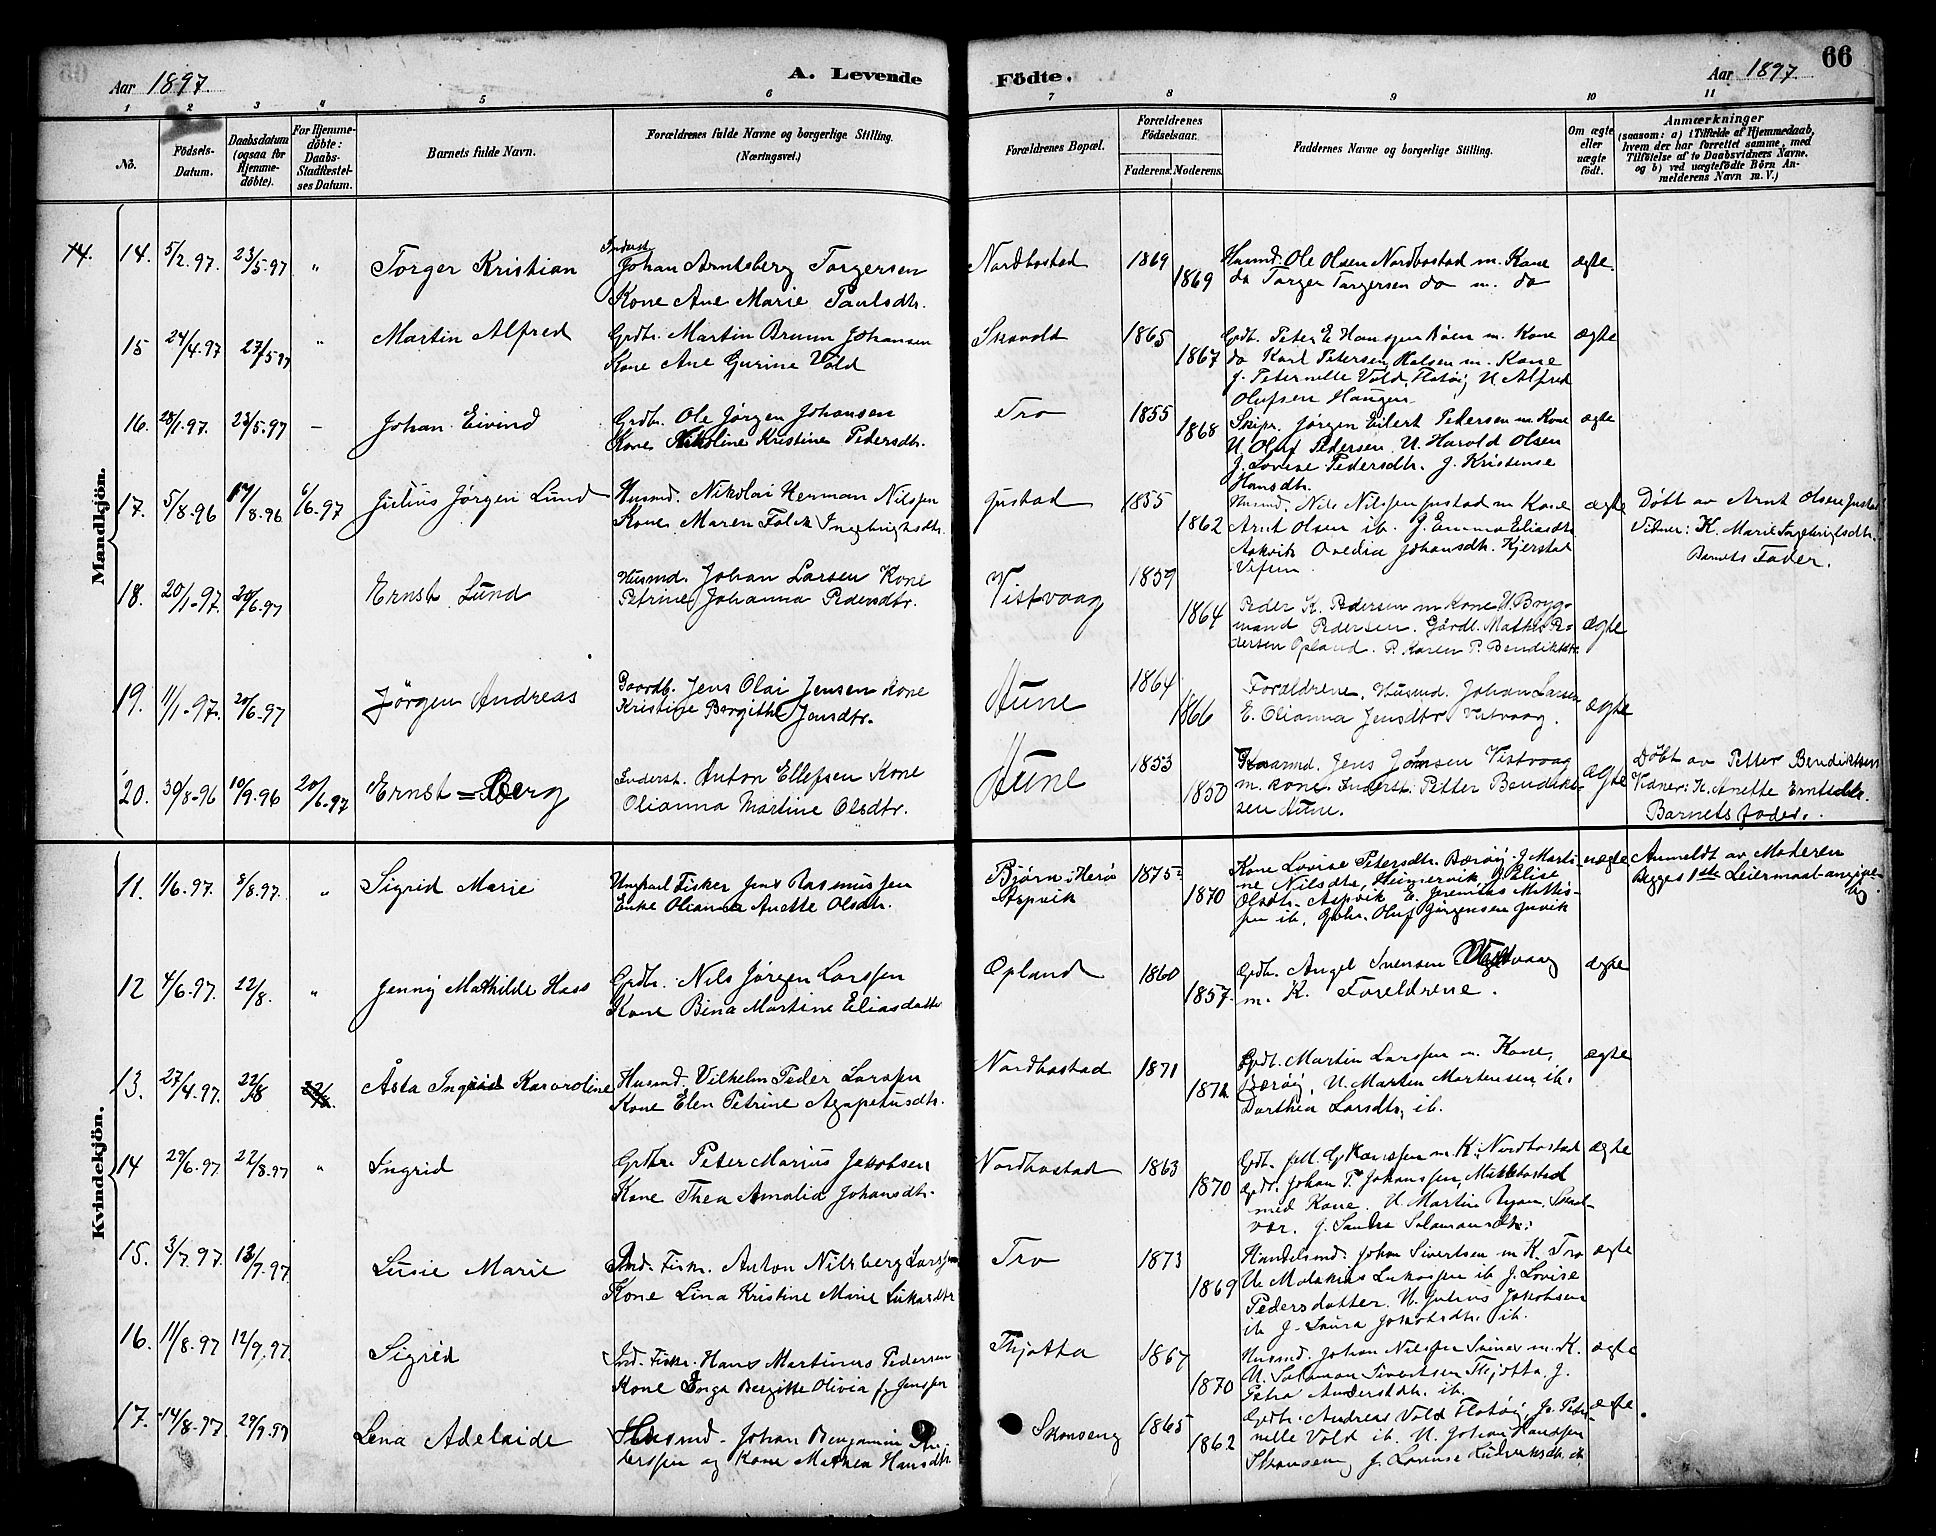 66
Aar 1897.
A. Levende
Födte.
Aar 1897.
1 2 3 4 5 6 7 8 9 10 11
No.
Födsels-Datum.
Daabsdatum (ogsaa for Hjemmedöbte).
For Hjemmedöbte: Daabs-Stadfæstelses Datum.
Barnets fulde Navn.
Forældrenes fulde Navne og borgerlige Stilling.
(Næringsvei.)
Forældrenes Bopæl.
Forældrenes Födselsaar.
Faderens. Moderens.
Faddernes Navne og borgerlige Stilling.
Om ægte eller uægte födt.
Anmærkninger
(saasom: a) i Tilfælde af Hjemmedaab,
hvem der har forrettet samme, med
Tilföielse af to Daabsvidners Navne.
og b) ved uægtefödte Börn Anmelderens Navn m. V.)
Mandkjön.
14. 14. 5/2.97. 23/5.97 " Torger Kristian
Inderst Johan Arntsberg Torgersen
Kone Ane Marie Paulsdtr.
Nordbostad 1869 1869
Husmd. Ole Olsen Nordbostad m. Kone ægte.
do Torger Torgersen do m. do
15 24/4.97 27/5.97 " Martin Alfred
Grdbr. Martin Bruun Johansen
Kone Ane Gurine Vold
1865 1867
Grdb. Peter E Hansen m. Kone ægte
do Karl Petersen Halsen m. Kone
J. Peternelle Vold, Flatøy U Alfred
Olufsen Haugen
16. 28/1.97. 23/5.97 – Johan Eivind
Grdb. Ole Jørgen Johansen
Kone Nikoline Kristine Pedersdtr.
Tro 1855 1868
Skipr. Jørgen Eilert Pedersen m. Kone ægte
U. Oluf Pedersen. U. Harold Olsen
J. Lovise Pedersdtr. J. Kristense
Hansdtr.
17. 5/8.96 17/8.96 6/6.97 Julius Jørgen Lund
Husmd. Nikolai Herman Nilssen
Kone Maren Falck Ingebrigtsdtr.
Gustad 1855 1862
Husmd. Nils Nilssen Gustad m. Kone ægte
Arnt Olsen ib. J. Emma Eliasdtr.
Aakvik Ovedia Johansdtr. Kjerstad
Vefsn.
Döbt av Arnt Olsen Gustad
Vidner: K. Marie Ingebrigtsdtr.
Barnets Fader.
18. 20/1.97. 20/6.97 Ernst Lund
Husmd. Johan Larsen Kone
Petrine Johanna Pedersdtr.
Vistvaag 1859 1864
Peder K. Pedersen m Kone U. Bryg-
mand Pedersen. Gårdb. Mathis Pe-
dersen Opland. P. Karen P. Bendiktsdtr. ægte
19. 11/1.97. 20/6.97 Jörgen Andreas
Gaardb. Jens Olai Jensen Kone
Kristine Bergithe Jensdtr.
Aune 1864. 1866
Forældrene, Husmd. Johan Larsen ægte
E. Olianna Jensdtr Vistvaag.
20. 30/8.96 10/9.96 20/6.97 Ernst Berg
Inderst. Anton Ellefsen Kone
Olianna Martine Olsdtr.
Aune 1853 1850
Jens Jensen Vistvaag ægte
m. kone. Inderst: Petter Bendikt-
sen Aune.
Döbt av Petter Bendiktsen
Vidner: K. Anette Erntsdtr.
Barnets fader.
Kvindekjön.
11. 1/6.97. 8/8.97. " Sigrid Marie
Ungkarl Fisker Jens Rasmussen
Enke Olianna Anette Olsdtr.
Bjørn i Herø Aspvik 1875 1870
Kone Lovise Petersdtr. Bærøy. J. Marti- uægte
ne Nilsdtr. Heimervik J. Elise
Olsdtr. Aspvik E. Jeremias Mathis-
sen ib. Grdbr. Oluf Jørgensen
Anmeldt av Moderen
Begges 1ste Leiermaal angivelig
12 4/6.97. 22/8. " Jenny Mathilde Hass
Grdbr. Nils Jørgen Larssen
Kone Bina Martine Eliasdatter
Opland 1860 1857.
Grdb. Angel Svensen Vistvaag ægte
m. K. Foreldrene.
13. 27/4.97. 22/8 Åsta Ingrid Karoroline
Husmd. Vilhelm Peder Larssen
Kone Elen Petrine Agapetusdtr.
Nordbostad 1871
Grdb. Martin Larssen m. Kone, ægte
Bærøy, U. Marten Martensen ib.
Dorthea Larsdtr. ib.
14 29/6.97 22/8.97 " Ingrid
Grdbr. Peter Marius Jakobsen
Kone Thea Amalia Johansdtr.
Nordbostad 1863 1870
m. K. Nordbostad ægte
Grdb. Johan P. Johanssen, Mikkelbostad
med Kone. U. Martin
J. Sandra Salamonsdtr.
15. 3/7.97. 13/7.97. Lusie Marie
Ind. Fiskr. Anton Nilsberg Larssen
Kone Lina Kristine Marie Lukasdtr
Tro 1873 1869
Handelsmd. Johan Sivertsen m K. Tro ægte
U. Malakias Lukassen ib J. Lovise
Pedersdatter. U. Julius Jakobsen
ib J. Laura Jakobsdtr. ib.
16. 11/8.97 12/9.97. Sigrid
Ind. Fiskr. Hans Martinus Pedersen
Kone Inga Bergitte Olivia f. Jenssen
Thjøtta 1867 1870
Husmd. Johan Nilssen m. K. ægte
U. Salamon Sivertsen Thjøtta. J.
Petra Andersdtr. ib.
17. 14/8.97 29/9.97 Lena Adelaide
Husmd. Johan Benjamin An-
derssen og Kone Mathea Hansdtr.
Skonseng 1865 1862
Grdbr. Andreas Vold Flatøy, J. Peter- ægte
nelle Vold ib. U. Johan Hanssen
Skonseng J. Lovise Ludviksdtr. ib